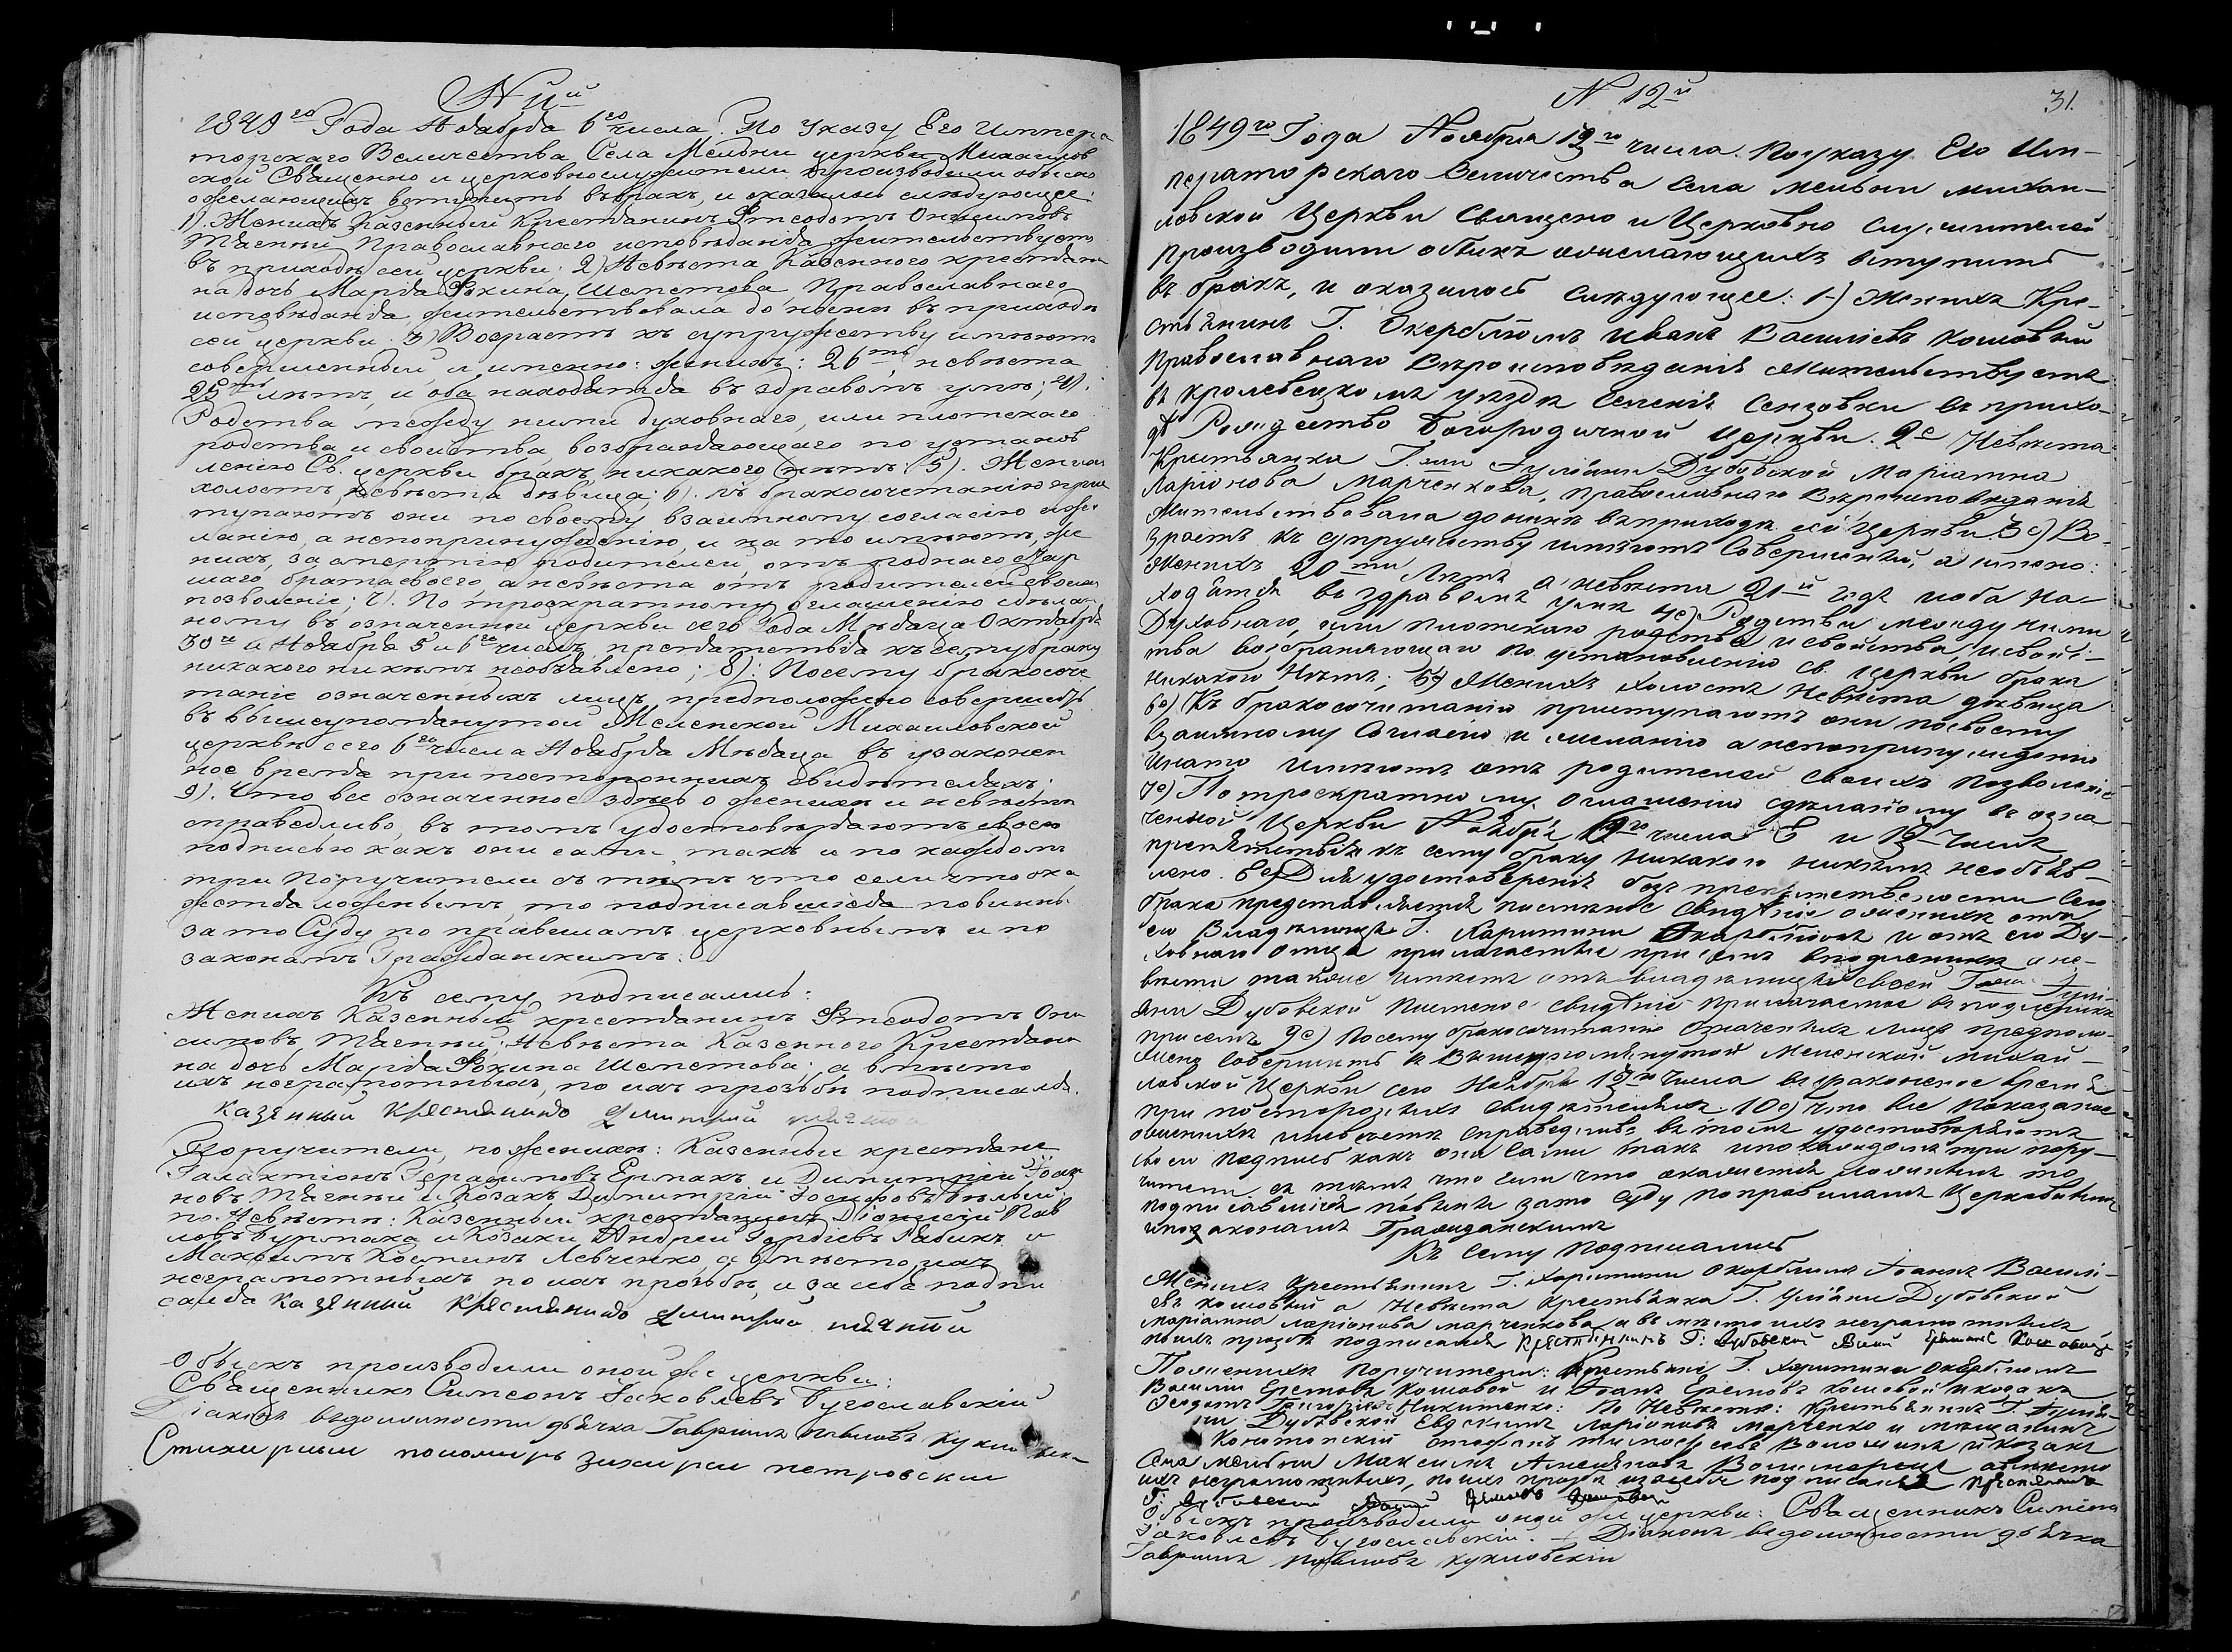 N 11й
1849го Года Ноября 6го числа. По Указу Его Импера
торскаго Величества Села Мельни церкви Михаилов
ской Священно и церковнослужители производили обыскъ
о желающихъ вступить въ бракъ, и оказалось слѣдующее:
1). Женихъ Казенный Крестьянинъ Ѳеодотъ Онисимовъ
Тягный Православнаго исповѣданія жительствуетъ
въ приходѣ сей церкви. 2) Невѣста Казенного крестьяни
на дочь Марія Фокина Шеметова, Православнаго
исповѣданія, жительствовала до нынѣ въ приходѣ
сей церкви. 3) Возрастъ къ супружеству имѣютъ
совершенный, и именно: женихъ: 26ть, невѣста
25ть лѣтъ, и оба находятся въ здравомъ умѣ; 4).
Родства между ними духовнаго, или плотскаго
родства и свойства, возбраняющаго по установ
ленію Св. церкви бракъ, никакого нѣтъ: 5). Женихъ
холостъ, невѣста дѣвица; 6). Къ бракосочетанію прис
тупаютъ они по своему взаимному согласію и же
ланію, а непопринужденію, и на то имѣютъ, же
нихъ, за смертію родителей, отъ роднаго стар
шаго брата своего, а невѣста отъ родителей своихъ
позволеніе; 7). По троекратному оглашенію сдѣлан
ному въ означенной церкви сего Года Мѣсяца Октября
30го и Ноября 5 и 6го числъ, препятствія къ сему браку
никакого никѣмъ необъявлено; 8): Посему бракосоче
таніе означенныхъ лицъ предположено совершить
въ вышеупомянутой Меленской Михаиловской
церквѣ сего 6го числа Ноября Мѣсяца въ узаконен
ное время при постороннихъ свидѣтеляхъ;
9). Что все означенное здѣсь о женихѣ и невѣстѣ
справедливо, въ томъ удостовѣряютъ своею
подписью какъ они сами, такъ и по каждомъ
три Поручители съ тѣмъ что если что ока
жется ложнымъ, то подписавшіеся повинны
за то Суду по правиламъ церковнымъ и по
законамъ Гражданскимъ.
Къ сему подписались:
Женихъ Казенный крестьянинъ Ѳеодотъ Они
симовъ Тягный; Невѣста Казенного Крестьяни
на дочь Марія Фокина Шеметова; а вмѣсто
ихъ неграмотныхъ, по ихъ прозьбѣ подписался
казенный Крестянинъ Димитрий
Поручители, по женихѣ: Казенные крестьяне
Галактіонъ Герасимовъ Ермакъ и Димитрій Іоан
новъ Тягный и Козакъ Димитрій Іосифовъ Бѣлый
по Невѣстѣ: Казенный крестьянинъ Діонисій Пав
ловъ Бурмака и Козаки Андрей Гордіевъ Рябикъ и
Максимъ Косминъ Левченко, а вмѣсто ихъ
неграмотныхъ по ихъ прозьбѣ, и за себя подпи
сался казенный Крестянинъ Димитрий тягний
Обыскъ производили оной же церкви:
Священникъ Симеонъ Іаковлевъ Бугославскій
Діаконъ въ должности дьячка Гавриилъ Павловъ
Стихирный пономарь Захарій петровскій
31.
N 12й
1849го Года Ноября 12го числа. По указу Его Им-
ператорскаго Величества Села Мельни Михаи-
ловской Церкви Священо и Церковно Служители
производили обыскъ о желающихъ вступить
въ бракъ, и оказалось Слѣдующее: 1-) Женихъ Кре-
стьянинъ Г. Окербломъ Иванъ Васильевъ Кошовый
Православнаго Вѣроисповѣданія Жительствуетъ
въ Кролевецкомъ уездѣ Селеніи въ прихо-
дѣ Рождество Богородичной Церкви. 2е Невѣста
Крестьянка Г.жи Іуліяни Дубовской Маріамна
Ларіонова Марченкова, православнаго Вѣроисповѣданія
Жительствовала до нынѣ въ приходѣ сей Церкви 3е) Во-
зрастъ къ супружеству имѣютъ Совершенный, а имено:
Женихъ 20ти Лѣтъ а невѣста 21й годъ и оба на-
ходятся въ здравомъ умѣ 4е) Родства между ними
Духовнаго, или плотскаго родства и свойства, и свойс-
тва возбраняющаго по установленію св. Церкви брака
никакого Нѣтъ; 5е) Женихъ холостъ Невѣста дѣвица
6е) Къ бракосочитанію приступаютъ они по своему
взаимному Согласію и желанію а непопринужденію
и нато имѣютъ отъ родителей своихъ позволеніе
7е) По троекратному Оглашенію сдѣланому въ озна
ченной Церкви Ноября числа 6 и Числъ
препятствія къ сему браку Никакого никѣмъ необъяв-
лено. 8е) Для удостоверенія безъ препятственности Сего
брака представляется писмѣное свидѣтельство о женихѣ отъ
его Владѣлицы Г. Харитины Окербломъ и отъ его Ду-
ховнаго отца прилагается при семъ въ подлинникѣ а не-
вѣста также имѣетъ отъ владѣлицы своей Г.жи Іулі-
яни Дубовской писменое свидѣтельство прилагаемое въ подлинникѣ
при семъ 9е) Посему бракосочитаніе Означеныхъ Лицъ предполо-
жено Совершить въ Вышеупомянутой Меленской Михай-
ловской Церкви сего Ноября 12го Числа въ узаконеное время
при постороннихъ свидѣтеляхъ 10е) Что все показаное
о женихѣ и невѣстѣ Справедливо, въ томъ удостовѣряютъ
своею подписью какъ они Сами такъ и по каждомъ три пору-
чители съ тѣмъ что если что окажется ложнымъ то
подписавшіеся повины зато Суду по правиламъ Церковнымъ
и по законамъ Гражданскимъ
Къ Сему Подписались
Женихъ Крестьянинъ Г. Харитини Окербломъ Іоанъ Василі-
евъ Кошовый а Невѣста Крестьянка Г. Уліани Дубовской
Маріамна Ларіонова Марченкова, а вмѣсто ихъ неграмотныхъ
по ихъ прозбѣ подписался Крестянинъ Г: Дубовской
По женихѣ Поручители: Крестьяне Г. Харитини Окербломъ
Василій Еремовъ Кошовой и Іоанъ Еремовъ Кошовой и козакъ
Ѳеодотъ Григоріевъ Никитенко: По Невѣстѣ: Крестьянинъ Г. Іулія-
ни Дубовской Евдокимъ Ларіоновъ Марченко и мѣщанинъ
Конотопскій Стефанъ Тимофѣевъ Волошинъ и козакъ
Села Мельни Максимъ а вмѣсто
ихъ неграмотныхъ, по ихъ прозбѣ и за себя подписался Крестянинъ
Г: Дубовской
Обыскъ производили оной же церкви: Священникъ Симеонъ
Іаковлевъ Бугославскій. Діаконъ въ должности дьячка
Гавриилъ Павловъ Кукловскій